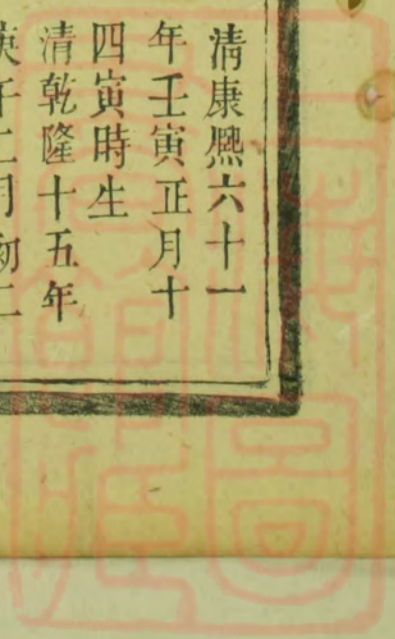 清康熙六十一
年壬寅正月十
四寅時生
清乾隆十五年
庚午二月初二